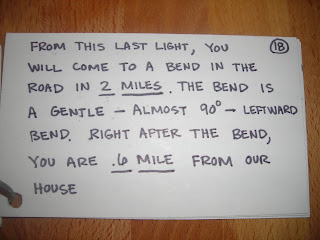 FROM THIS LAST LIGHT, YOU 18
WILL COME TO A BEND IN THE
ROAD IN 2 MILES. THE BEND IS
A GENTLE - ALMOST 90° - LEFTWARD
BEND. RIGHT AFTER THE BEND,
YOU ARE .6 MILE FROM OUR
HOUSE